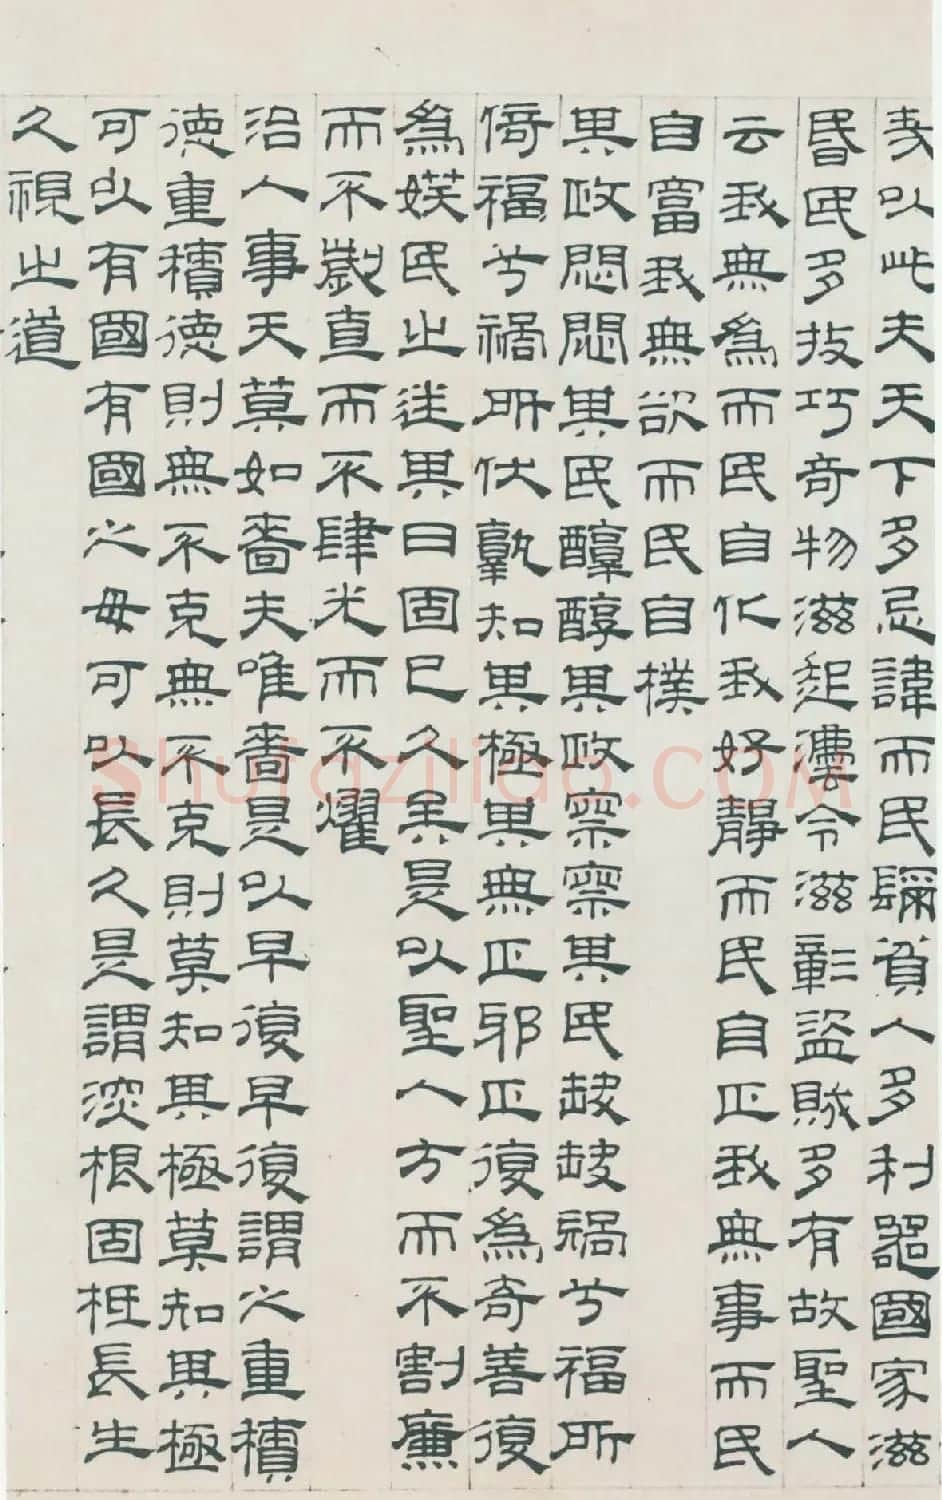 哉以此夫天下多忌諱而民彌貧人多利器國家滋
昏民多技巧奇物滋起灋令滋彰盜賊多有故聖人
云我無為而民自化我好靜而民自正我無事而民
自富我無欲而民自樸
其政悶悶其民醇醇其政察察其民缺缺禍兮福所
倚福兮禍所伏孰知其極其無正邪正復為奇善復
為媄民之迷其日固已久矣是以聖人方而不割廉
而不劌直而不肆光而不耀
治人事天莫如嗇夫唯嗇是以早復早復謂之重積
德重積德則無不克無不克則莫知其極莫知其極
可以有國有國之母可以長久是謂深根固柢長生
久視之道
Shufaziliao.COM